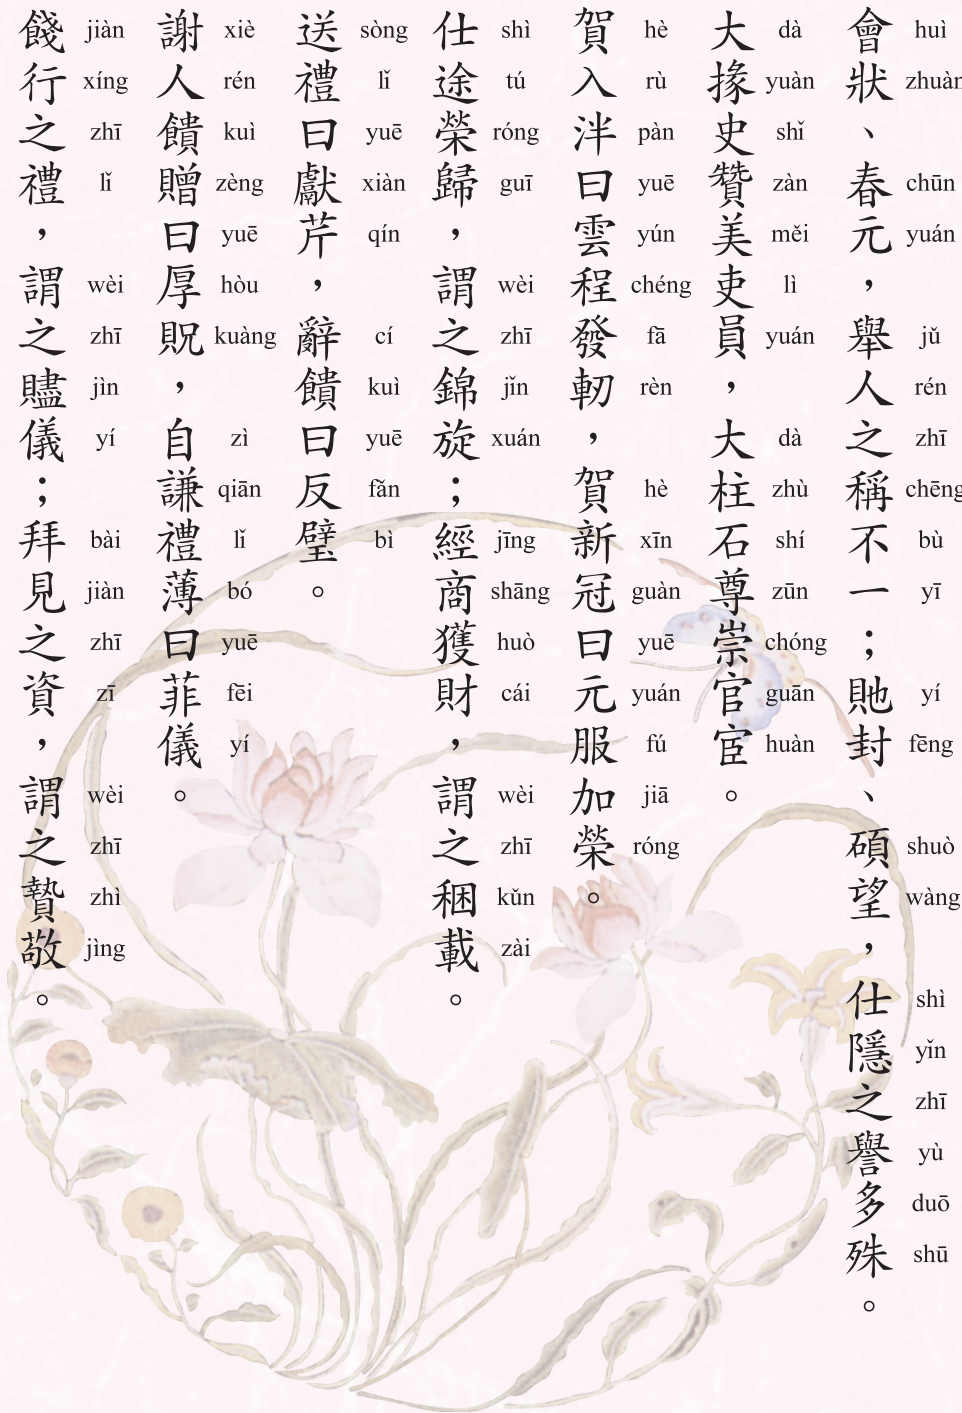 會狀、春元，舉人之稱不一；貤封、碩望，仕隱之譽多殊。
huì zhuàn chūn yuán jǔ rén zhī chēng bù yī yí fēng shuò wàng shì yǐn zhī yù duō shū
大掾史贊美吏員，大柱石尊崇官宦。
dà yuàn shǐ zàn měi lì yuán dà zhù shí zūn chóng guān huàn
賀入泮曰雲程發軔，賀新冠曰元服加榮。
hè rù pàn yuē yún chéng fā rèn hè xīn guàn yuē yuán fú jiā róng
仕途榮歸，謂之錦旋；經商獲財，謂之稇載。
shì tú róng guī wèi zhī jǐn xuán jīng shāng huò cái wèi zhī kǔn zài
送禮曰獻芹，辭饋曰反璧。
sòng lǐ yuē xiàn qín cí kuì yuē fǎn bì
謝人饋贈曰厚貺，自謙禮薄曰菲儀。
xiè rén kuì zèng yuē hòu kuàng zì qiān lǐ bó yuē fēi yí
餞行之禮，謂之贐儀；拜見之資，謂之贄敬。
jiàn xíng zhī lǐ wèi zhī jìn yí bài jiàn zhī zī wèi zhī zhì jìng